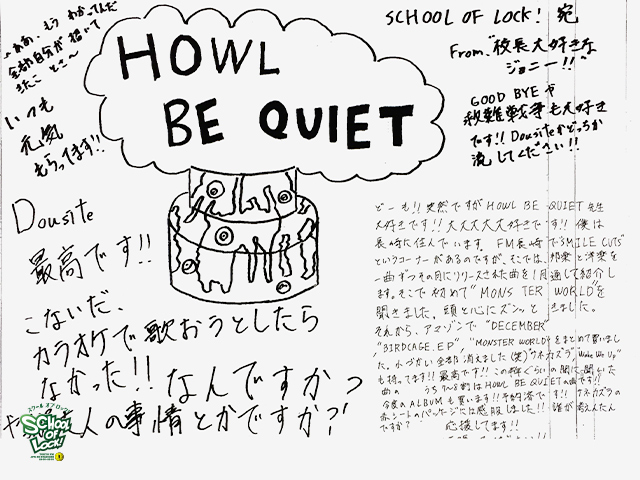 〜ああ、もう わかってんだ
全部自分が 招いて
きたこ とさ〜
いつも
元気
もらってます!!
HOWL
BE QUIET
SCHOOL OF LOCK! 宛
From. "校長大好きな
ジョニー!!"
GOOD BYE や
救難戦争も大好き
です!! Dousiteかどっちか
流してください!!
Dousite
最高です!!
こないだ、
カラオケで歌おうとしたら
なかった!! なんですかっ
人の事情とかですか?
どーも!! 突然ですが HOWL BE QUIET 先生
大好きです!! 大大大大大好きです!! 僕は
長崎に住んでいます。 FM長崎で"3MILE CUTS"
というコーナーがあるのですが、そこでは、邦楽と洋楽を
一曲ずつその日にリリースされた曲を1月通して紹介し
ます。そこで初めて"MONSTER WORLD"を
聞きました。頭と心にズンッときました。
それから、アマゾンで "DECEMBER"
"BIRDCAGE.EP", "MONSTER WORLD"をまとめて買いまし
た。小づかい全部消えました(笑) ウネカズラ "Wake We Up"
も持ってます!! 最高です!! この
曲の うち 割はHOWL BE QUIETの曲です!!
今度のALBUMも買います!! 予約済です!!
赤シートのパッケージには感服しました!! 誰が考えたん
ですか? 応援してます!!
スクール オブ ロック!
SCHOOL OF LOCK!